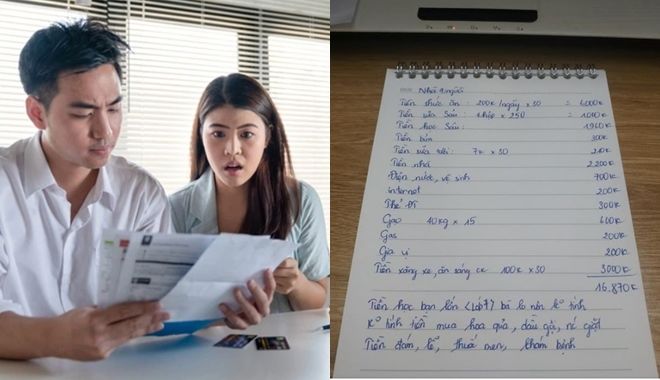 Nhà 4 người
Tiền thức ăn : 200k/ngày x 30 = 6000k
Tiền sữa Sâu : 4 hộp x 250 : 1010k
Tiền học Sâu : 1960k
Tiền bỉm 300k
Tiền sữa tươi : 7k x 30 210k
Tiền nhà 2.200k
Điện nước, vệ sinh 700k
internet 200k
Phế Đi 300k
Gạo 40kg x 15 600k
Gas 200k
Gia vị 200k
Tiền xăng xe, ăn sáng ck 100k x 30 3000k
16.870k
Tiền học bạn lớn (lớp 7) bà lo nên k tính
K tính tiền mua hoa quả, dầu gội, nc giặt
Tiền đám, lễ, thuốc men, khám bệnh